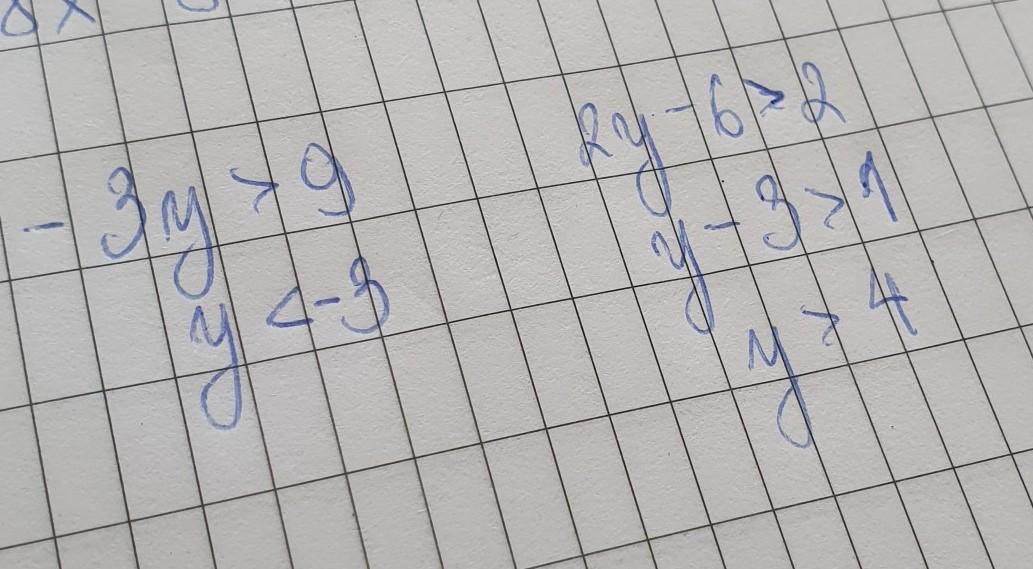 - 3y > 9
y < -3
2y - 6 > 2
y - 3 > 1
y > 4